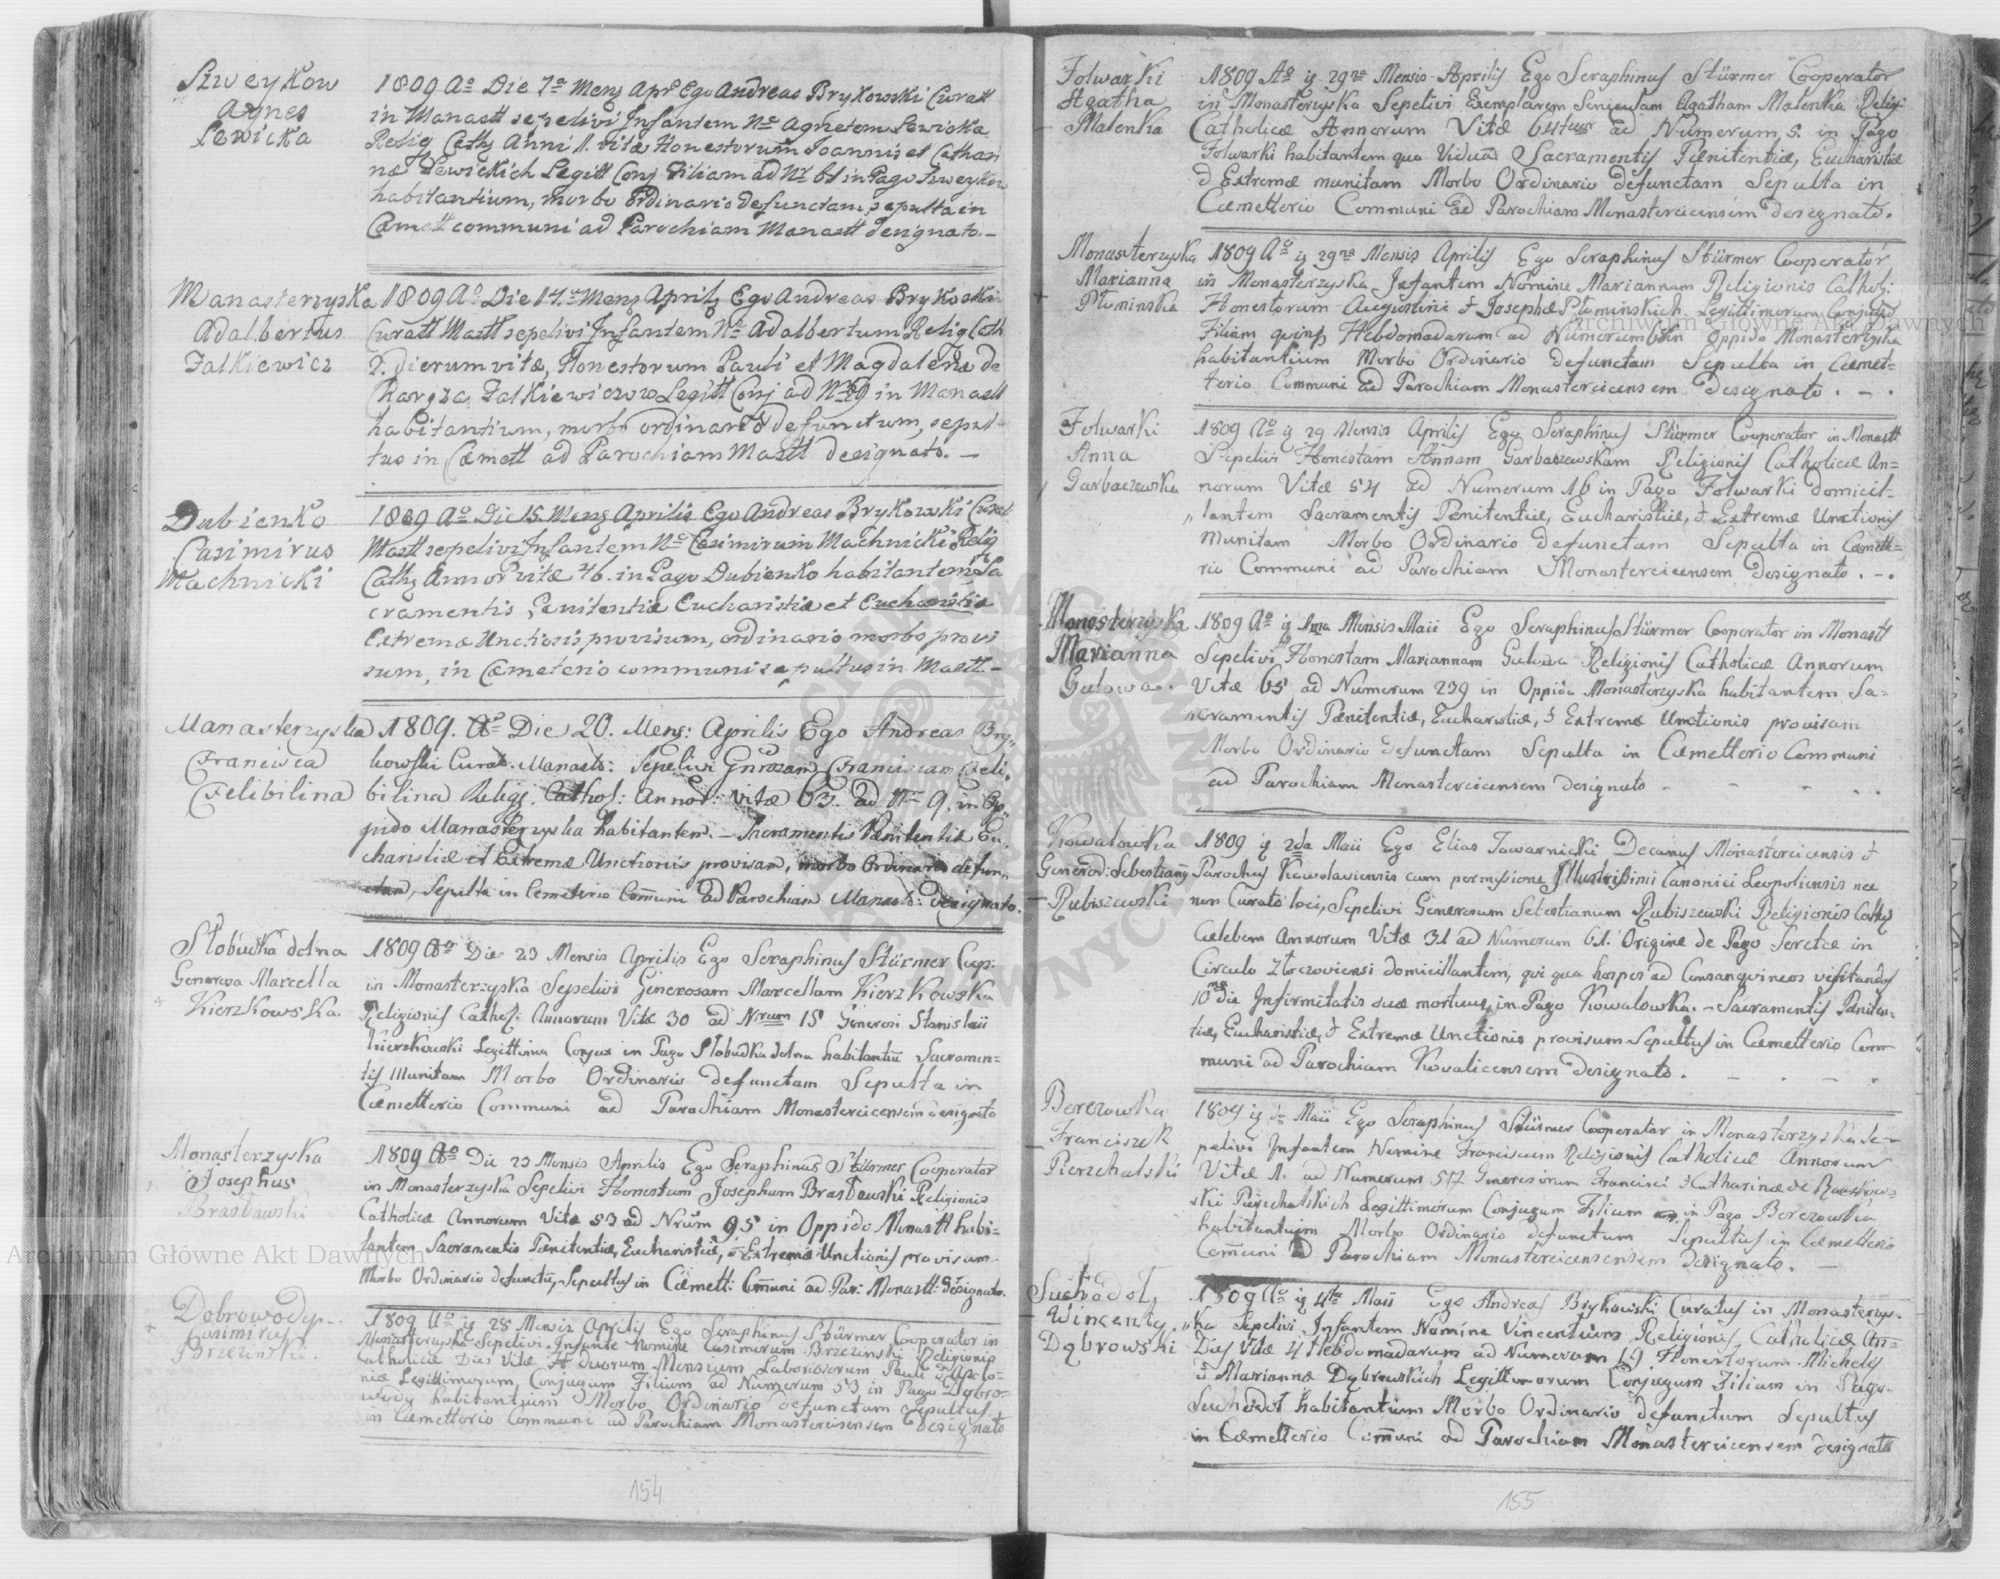 Szweykow
Agnes
Lewicka
1809 Ao Die 7a Mens Apr Ego Andreas Brykowski Curatt
in Manastt sepelivi Infantem Ne Agnetem Lewicka
Relig Cath Anni 1. vitæ Honestorum Joannis et Cathari
næ Lewickich Legitt Conj Filiam ad Nr 61 in Pago Szweykow
habitantium, morbo Ordinario defunctam, sepulta in
Cæmett communi ad Parochiam Manastt designato. -
Manasterzyska
Adalbertus
Falkiewicz
1809 Ao Die 14. Mens Aprilis Ego Andreas Brykoski
Curatt Mastt sepelivi Infantem Ne Adalbertum Relig Cath
dierum vitæ, Honestorum Pauli et Magdalenæ de
Falkiewiczow Legitt Conj ad Nr in Manastt
habitantium, morbo ordinario defunctum, sepul-
tus in Cæmett ad Parochiam Mastt designato. -
Dubienko
Casimirus
Machnicki
1809 Ao Die 15. Mens Aprilis Ego Andreas Brykowski Curat
Mastt sepelivi Infantem Ne Casimirum Machnicki Relig
Cath Annor vitæ 46. in Pago Dubienko habitantem Sa
cramentis Penitentiæ Eucharistiæ et Eucharistiæ
Extremæ Unctionis provisum, ordinario morbo provi
sum, in Cæmeterio communi sepultus in Mastt. -
Manasterzyska
Francisca
Felibilina
1809. Ao Die 20. Mens: Aprilis Ego Andreas Bry-
kowski Curat. Manast: Sepelivi Franciscam Feli-
bilina Religi. Cathol: Annor: vitæ 63. ad Nr 9. in Op-
pido Manasterzyska habitantem. - Sacramentis Penitentiæ Eu-
charistiæ et Extremæ Unctionis provisam, morbo Ordinario defun-
ctam, Sepulta in Cemeterio Comuni ad Parochiam Manast: designato.
Slobudka dolna
Generosa Marcella
Kierzkowska
1809 Ao Die 23 Mensis Aprilis Ego Seraphinus Stürmer Coop:
in Monasterzyska Sepelivi Generosam Marcellam Kierzkowska
Religionis Cathol: Annorum Vitæ 30 ad Nrum 15 Generosi Stanislai
Kierzkowski Legittima Conjux in Pago Slobudka dolna habitantiu Sacramen-
tis Munitam Morbo Ordinario defunctam Sepulta in
Cæmetterio Communi ad Parochiam Monastercicensem designato
Monasterzyska
Josephus
Braslawski
1809 Ao Die 23 Mensis Aprilis Ego Seraphinus Stürmer Cooperator
in Monasterzyska Sepelivi Honestum Josephum Braslawski Religionis
Catholicæ Annorum Vitæ 53 ad Nrum 95 in Oppido Monastt habi-
tantem Sacramentis Pænitentiæ, Eucharistiæ, & Extremæ Unctionis provisum
Morbo Ordinario defunctu, Sepultus in Cæmett: Comuni ad Par: Monastt: designato.
Dobrowody
Casimirus
Brzezinski.
1809 Ao ij 28 Mensis Aprilis Ego Seraphinus Stürmer Cooperator in
Monasterzyska Sepelivi Infante Nomine Casimirum Brzezinski Religionis
Catholicæ Dies Vitæ Duorum Mensium Laboriosorum Pauli & Apolo-
niæ Legittimorum Conjugum Filium ad Numerum 53 in Pago Dobro-
wody habitantium Morbo Ordinario defunctum Sepultus
in Cæmetterio Communi ad Parochiam Monastercicensem designato
154
Folwarki
Agatha
Malenka
1809 Ao ij 29na Mensis Aprilis Ego Seraphinus Stürmer Cooperator
in Monasterzyska Sepelivi Agatham Malenka Religi:
Catholicæ Annorum Vitæ 64tuor ad Numerum 5. in Pago
Folwarki habitantem qua Vidua Sacramentis Pænitentiæ, Eucharistiæ
& Extremæ munitam Morbo Ordinario defunctam Sepulta in
Cæmetterio Communi ad Parochiam Monastercicensem designato.
Monasterzyska
Marianna
Plominska
1809 Ao ij 29na Mensis Aprilis Ego Seraphinus Stürmer Cooperator
in Monasterzyska Infantem Nomine Mariannam Religionis Catholi:
Honestorum Augustini & Josephæ Plominskich Legittimorum Conjugum
Filiam quinq Hebdomadarum ad Numerum in Oppido Monasterzyska
habitantium Morbo Ordinario defunctam Sepulta in Cæmet-
terio Communi ad Parochiam Monastercicensem designato. - .
Folwarki
Anna
Garbaczewska
1809 Ao ij 29 Mensis Aprilis Ego Seraphinus Stürmer Cooperator in Monastt
Sepelivi Honestam Annam Garbaczewskam Religionis Catholicæ An=
norum Vitæ 54 ad Numerum 16 in Pago Folwarki domicil-
lantem Sacramentis Pænitentiæ, Eucharistiæ, & Extremæ Unctionis
munitam Morbo Ordinario defunctam Sepulta in Cæmett=
rio Communi ad Parochiam Monastercicensem designato. -.
Monasterzyska
Marianna
Gulowa.
1809 Ao ij 1ma Mensis Maii Ego Seraphinus Stürmer Cooperator in Monastt
Sepelivi Honestam Mariannam Gulowa Religionis Catholicæ Annorum
Vitæ 65 ad Numerum 239 in Oppido Monasterzyska habitantem Sa=
cramentis Pænitentiæ, Eucharistiæ, & Extremæ Unctionis provisam
Morbo Ordinario defunctam Sepulta in Cæmetterio Communi
ad Parochiam Monastercicensem designato - - - . .
Kowalowka
Generos: Sebestiany
Rubiszewski
1809 ij 2da Maii Ego Elias Towarnicki Decanus Monastercicensis &
Parochus Kowalaviensis cum permissione Illustrissimi Canonici Leopoliensis nec
non Curato loci, Sepelivi Generosum Sebestianum Rubiszewski Religionis Cath
Cælebem Annorum Vitæ 31 ad Numerum 61. Origine de Pago in
Circulo Zloczoviensi domicillantem, qui qua hospes ad Consanguineos visitandos
10ma die Infirmitatis suæ mortuus in Pago Kowalowka. - Sacramentis Pæniten-
tiæ, Eucharistiæ, & Extremæ Unctionis provisum Sepultus in Cæmetterio Com-
muni ad Parochiam Kovalicensem designato. - - -
Berezowka
Franciszek
Pierzchalski
1809 ij Maii Ego Seraphinus Stürmer Cooperator in Monasterzyska Se-
pelivi Infantem Nomine Franciscum Religionis Catholicæ Annorum
Vitæ 1. ad Numerum 57 Generosorum Francisci & Catharinæ de
Pierzchalskich Legittimorum Conjugum Filium in Pago Berezowka
habitantium Morbo Ordinario defunctum Sepultus in Cæmetterio
Comuni ad Parochiam Monastercicensem designato. -
Suchodol
Wincenty
Dąbrowski
1809 Ao ij 4ta Maii Ego Andreas Brykowski Curatus in Monasterzys-
ka Sepelivi Infantem Nomine Vincentium Religionis Catholicæ An=
Dies Vitæ 4 Hebdomadarum ad Numerum 19 Honestorum Michelis
& Mariannæ Dąbrowskich Legittimorum Conjugum Filium in Pago
Suchodol habitantium Morbo Ordinario defunctum Sepultus
in Cæmetterio Comuni ad Parochiam Monastercicensem designato
155
Archiwum Główne Akt Dawnych
Archiwum Główne Akt Dawnych